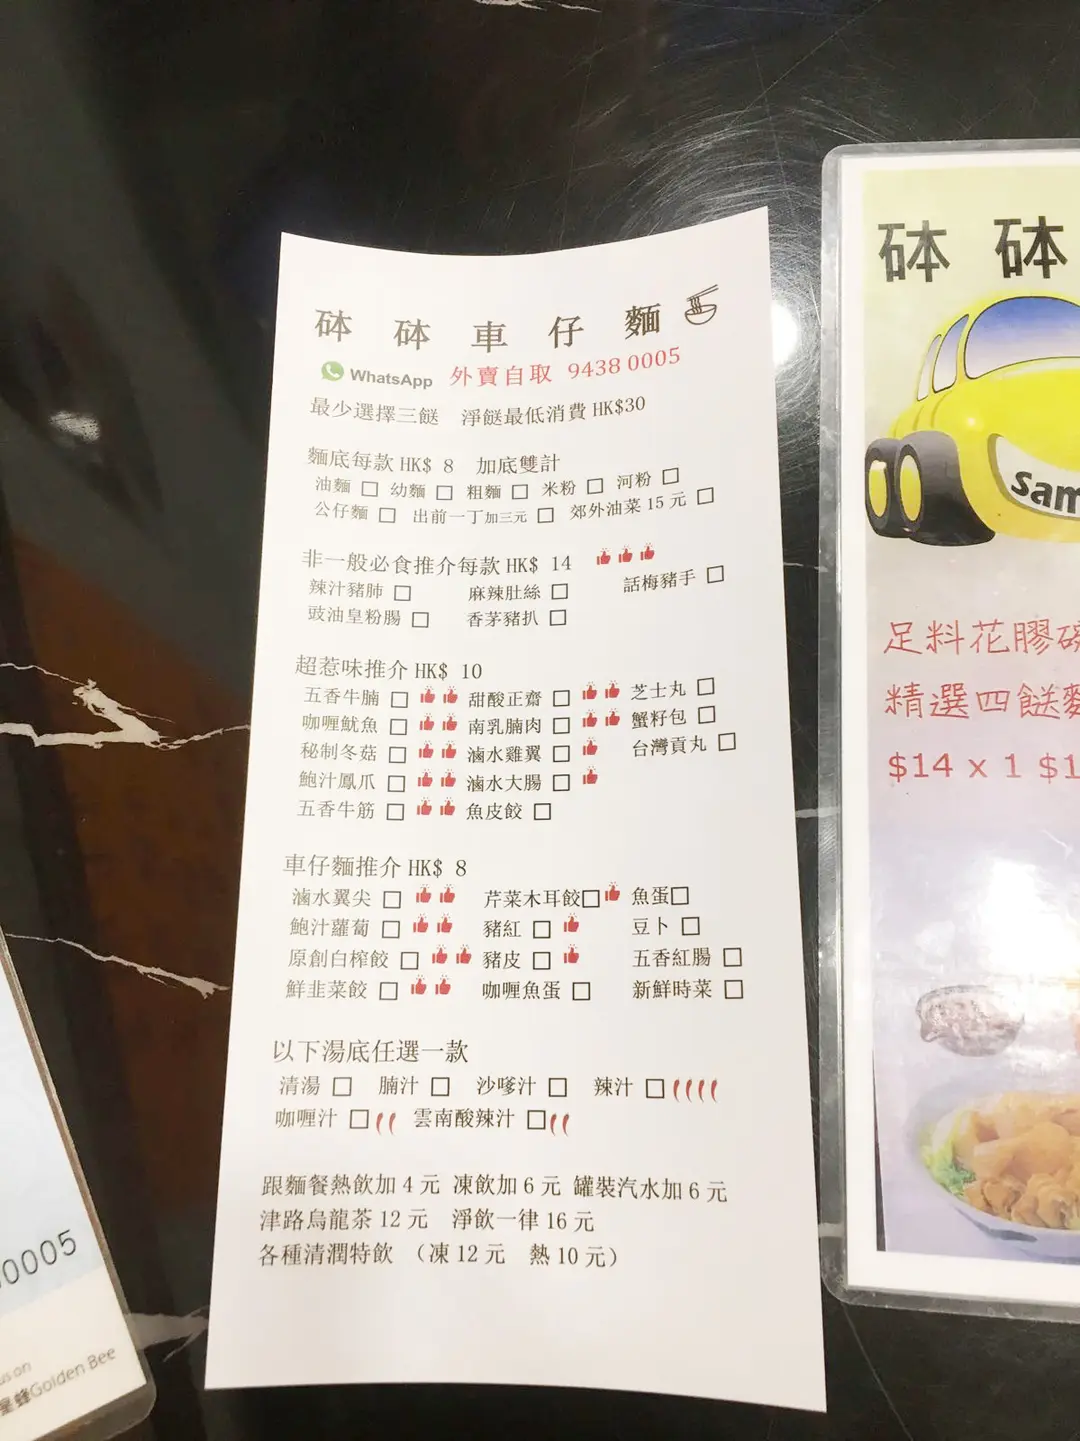 砵砵車仔麵
WhatsApp 外賣自取 9438 0005
最少選擇三餸 淨餸最低消費 HK$30
麵底每款 HK$ 8 加底雙計
油麵 □ 幼麵 □ 粗麵 □ 米粉 □ 河粉 □
公仔麵 □ 出前一丁加三元 □ 郊外油菜 15 元 □
非一般必食推介每款 HK$ 14
辣汁豬肺 □ 麻辣肚絲 □ 話梅豬手 □
豉油皇粉腸 □ 香茅豬扒 □
超惹味推介 HK$ 10
五香牛腩 □ 甜酸正齋 □ 芝士丸 □
咖喱魷魚 □ 南乳腩肉 □ 蟹籽包 □
秘制冬菇 □ 滷水雞翼 □ 台灣貢丸 □
鮑汁鳳爪 □ 滷水大腸 □
五香牛筋 □ 魚皮餃 □
車仔麵推介 HK$ 8
滷水翼尖 □ 芹菜木耳餃□ 魚蛋□
鮑汁蘿蔔 □ 豬紅 □ 豆卜 □
原創白榨餃 □ 豬皮 □ 五香紅腸 □
鮮韭菜餃 □ 咖喱魚蛋 □ 新鮮時菜 □
以下湯底任選一款
清湯 □ 腩汁 □ 沙嗲汁 □ 辣汁 □
咖喱汁 □ 雲南酸辣汁 □
跟麵餐熱飲加 4 元 凍飲加 6 元 罐裝汽水加 6 元
津路烏龍茶 12 元 淨飲一律 16 元
各種清潤特飲 （凍 12 元 熱 10 元）
砵 砵
sam
足料花膠
精選四餸麵
$14 x 1 $1
0005
us on
蜂Golden Bee